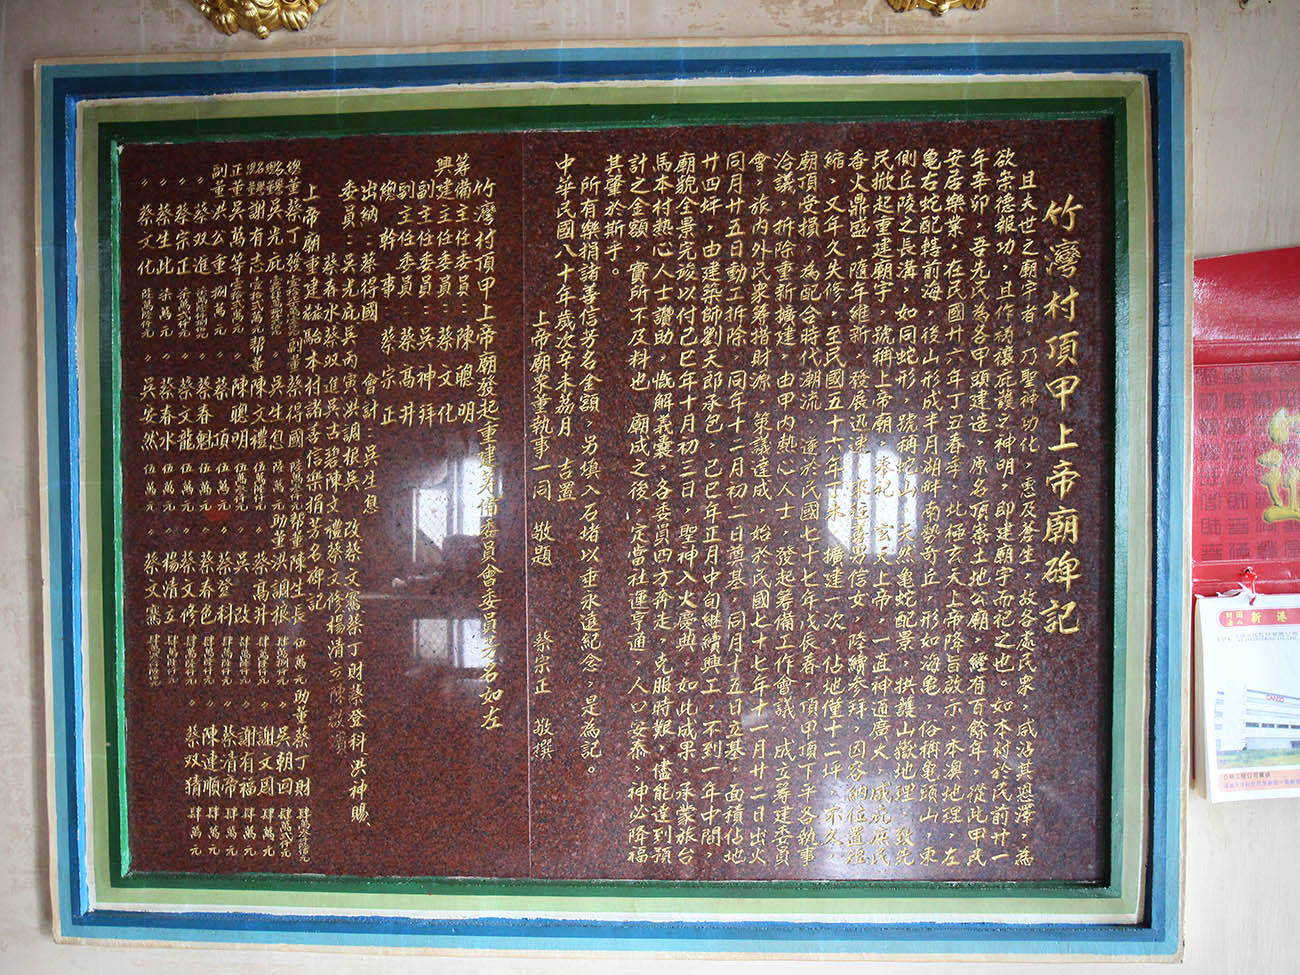 竹灣村頂甲上帝廟碑記
且夫世之廟宇者，乃聖神功化，惠及蒼生，故各處民眾，咸沾其恩澤，為
欲崇德報功，且作禎禧庇護之神明，即建廟宇而祀之也。如本村於民前廿一
年辛卯，吾先民為各甲頭建造，原名頂崇土地公廟，經有百餘年，從此甲民
安居樂業，在民國廿六年丁丑春季，北極玄天上帝降旨啟示，本澳地理，左
龜右蛇配轄前海，後山形成半月湖畔，南勢奇丘，形如海龜，俗稱龜頭山，東
側丘陵之長溝，如同蛇形，號稱蛇山，天然龜蛇配景，拱護山嶽地理，致先
民掀起重建廟宇，號稱上帝廟，奉祀 玄天上帝，一直神通廣大，咸庇庶民
香火鼎盛，隨年維新，發展迅速，來往善男信女，陸續參拜，因容納位置極
縮，又年久失修，至民國五十六年丁未，擴建一次，佔地僅十二坪，不久，
廟頂受損，為配合時代潮流，遂於民國七十七年戊長春，頂甲頂下平各執事
洽議，拆除重新擴建，由甲內熱心人士，發起籌備工作會議，成立籌建委員
會，旅內外民眾籌措財源，策議達成，始於民國七十七年十一月廿二日出火
同月廿五日動工拆除，同年十二月初二日奠基，同月十五日立基，面積佔地
廿四坪，由建築師劉天郎承包，己巳年正月中旬繼續興工，不到一年中間，
廟貌全景完竣以付己巳年十月初三日，聖神入火慶典，如此成果，承蒙旅台
馬本村熱心人士讚助，慨解義囊，各委員四方奔走，克服時艱，儘能達到預
計之金額，實所不及料也。廟成之後，定當社運亨通，人口安泰，神必降福
其肇於斯乎。
所有樂捐諸善信芳名金額，另填入石堵以垂永遠紀念，是為記。
上帝廟眾董執事一同 敬題 蔡宗正 敬撰
中華民國八十年歲次辛未荔月 吉置
竹灣村頂甲上帝廟發起重建籌備委員會委員芳名如左
籌備主任委員：陳聰明
興建主任委員：蔡文化
副主任委員：吳神拜
副主任委員：蔡高井
總幹事：蔡宗正
出納：蔡得國 會計：吳生息
委員：吳光庇吳丙寅洪調根吳 改蔡文騫蔡丁財蔡登科洪神賜、
蔡春水蔡双進吳古碧陳文禮蔡文修楊清立陳
上帝廟重建旅駘本村諸善信樂捐芳名碑記
總董蔡丁強 副董蔡得國 幫董陳生長 伍萬元 助董蔡丁財
吳光庇 吳生息 陸萬元 助董洪調根 吳朝回
謝有志 幫董陳文禮 蔡高井 謝文固
正董吳萬等 陳聰明 伍萬元 吳 改 謝有福 肆萬元
副董洪公重 捌萬元 〃 蔡頂 伍萬元 〃 蔡登科 〃 蔡清帝 肆萬元
〃 蔡双進 〃 蔡春魁 伍萬元 〃 蔡春色 〃 陳連順 肆萬元
〃 蔡生此 柒萬元 〃 蔡文龍 伍萬元 〃 蔡文修 〃 蔡双猜 肆萬元
〃 蔡宗正 〃 蔡春水 伍萬元 〃 楊清立
〃 蔡文化 〃 吳安然 伍萬元 〃 蔡文騫
新港